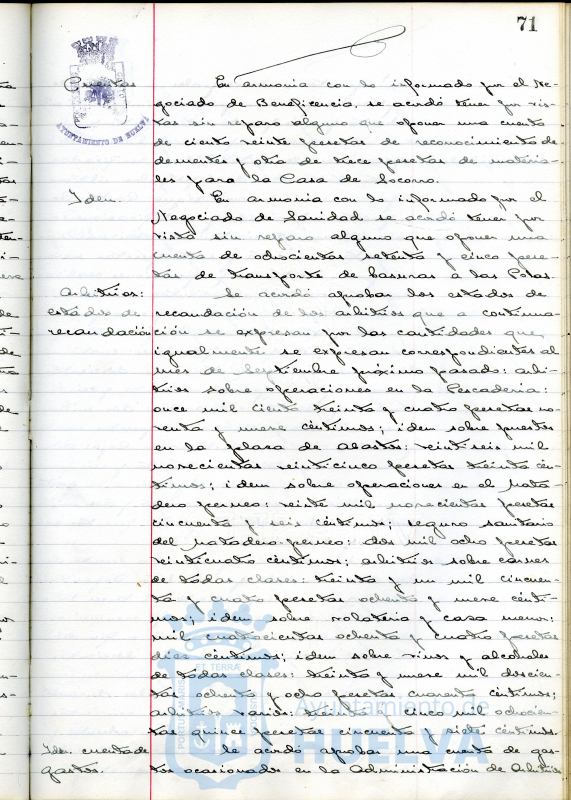 71
AYUNTAMIENTO DE HUELVA
Cuentas
En armonia con lo informado por el Ne-
gociado de Beneficencia, se acordó tener por vis-
tas sin reparo alguno que oponer una cuenta
de ciento veinte pesetas de reconocimiento de
dementes y otra de trece pesetas de materia-
les para la Casa de Socorro.
Idem.
En armonia con lo informado por el
Negociado de Sanidad se acordó tener por
vista sin reparo alguno que oponer una
cuenta de ochocientas setenta y cinco pese-
tas de transporte de basuras a las Potas.
Arbitrios:
estados de
recaudación
Se acordó aprobar los estados de
recaudación de los arbitrios que a continua-
ción se expresan por las cantidades que
igualmente se expresan correspondientes al
mes de Septiembre próximo pasado: arbi-
trios sobre operaciones en la Pescadería:
once mil ciento treinta y cuatro pesetas no-
venta y nueve céntimos; idem sobre puestos
en la plaza de abastos: veintiseis mil
novecientas veinticinco pesetas treinta cén-
timos; idem sobre operaciones en el Mata-
dero perneo: veinte mil novecientas pesetas
cincuenta y seis céntimos; seguro sanitario
del Matadero perneo: dos mil ocho pesetas
veinticuatro céntimos; arbitrios sobre carnes
de todas clases: treinta y un mil cincuen-
ta y cuatro pesetas ochenta y nueve cénti-
mos; idem sobre volateria y casa menor:
mil cuatrocientas ochenta y cuatro pesetas
diez céntimos; idem sobre vinos y alcoholes
de todas clases: treinta y nueve mil doscien-
tas ochenta y ocho pesetas cuarenta céntimos;
arbitrios varios: treinta y cinco mil ochocien-
tas quince pesetas cincuenta y siete céntimos.
Idem cuenta de
gastos.
Se acordó aprobar una cuenta de gas-
tos ocasionados en la Administración de Arbitrios
ET TERRA
Ayuntamiento de
HUELVA